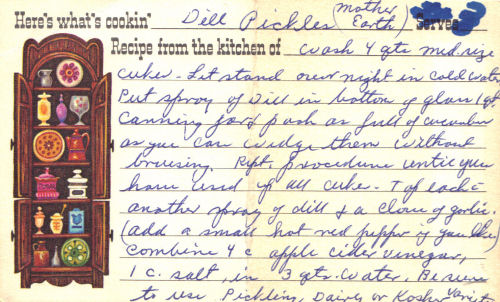 Here's what's cookin' Dill Pickles (Mother Earth) Serves
Recipe from the kitchen of wash 4 qts med. size
cukes - Let stand over night in cold water
Put spray of Dill in bottom of glass 1 qt
Canning jar & pack as full of cucumber
as you can wedge them without
bruising. Rept. procedure until you
have used up all cukes. Top each =
another spray of dill & a clove of garlic.
(add a small hot red pepper if you like)
Combine 4 c apple cider vinegar,
1 c. salt, in 3 qts. water. Be sure
to use Pickling, Dairy or Kosher